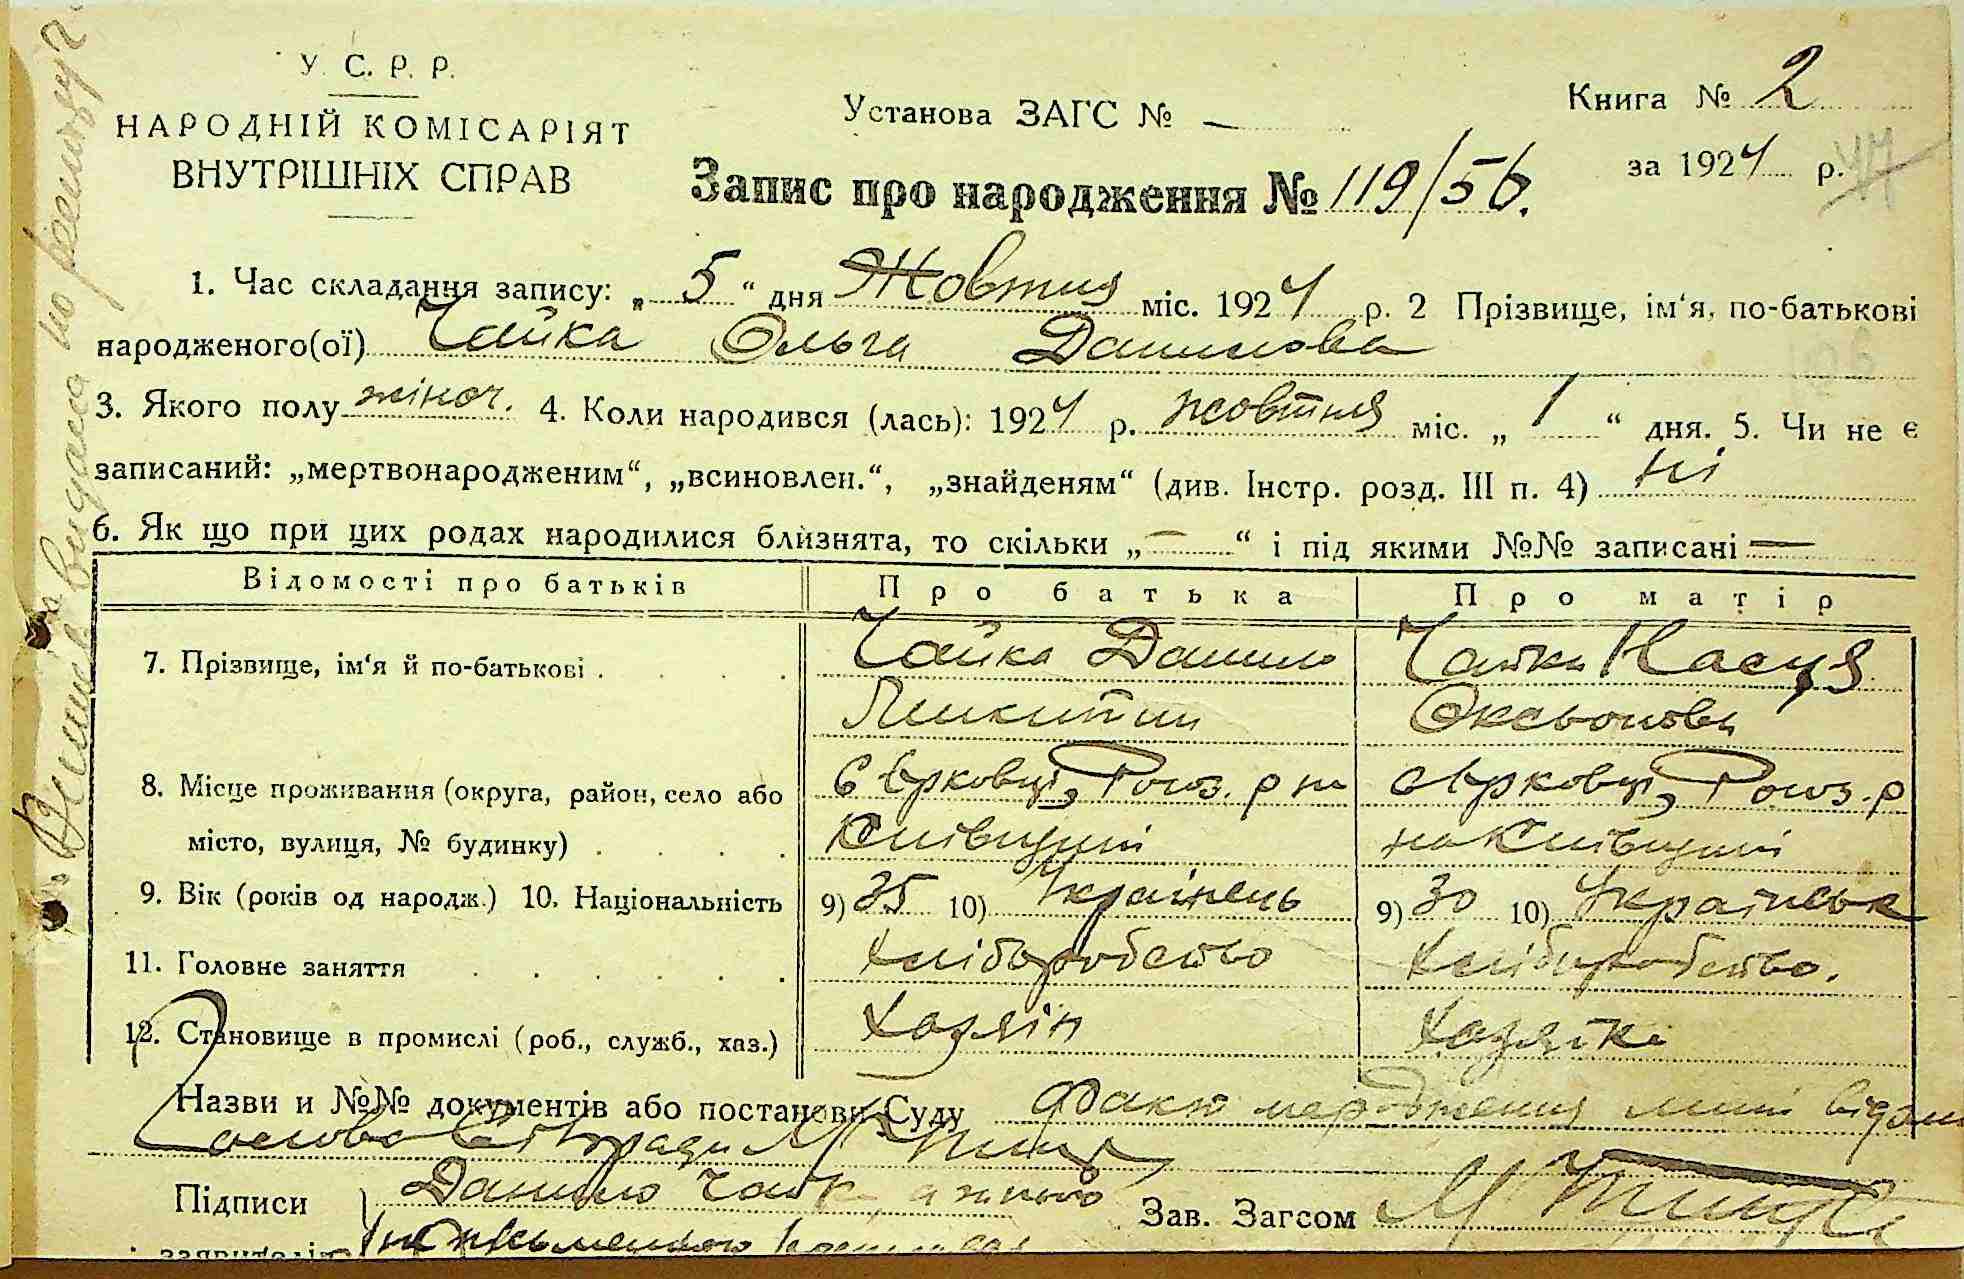 У. С. Р. Р.
НАРОДНІЙ КОМІСАРІЯТ
ВНУТРІШНІХ СПРАВ
Установа ЗАГС № —
Книга № 2
за 1924 р.
Запис про народження № 119/56.
1. Час складання запису: „ 5 “ дня Жовтня міс. 1924 р. 2 Прізвище, ім‘я, по-батькові
народженого(ої) Чайка Ольга Данилова
3. Якого полу жіноч. 4. Коли народився (лась): 1924 р. жовтня міс. „ 1 “ дня. 5. Чи не є
записаний: „мертвонародженим“, „всиновлен.“, „знайденям“ (див. Інстр. розд. III п. 4) ні
6. Як що при цих родах народилися близнята, то скільки „ — “ і під якими №№ записані —
Відомості про батьків Про батька Про матір
7. Прізвище, ім‘я й по-батькові . . . . Чайка Данило Чайка Насця
Микитин Оксьонова
8. Місце проживання (округа, район, село або с Вірковці, р на с Вірковці, р
місто, вулиця, № будинку) . . . . Київщині на Київщині
9. Вік (років од народж.) 10. Національність 9) 35 10) Українець 9) 30 10) Українськ
11. Головне заняття . . . . . . Хліборобство Хліборобство.
12. Становище в промислі (роб., служб., хаз.) Хазяін Хазяйка
Назви и №№ документів або постанови Суду Факт народження мині відом
Голова С Ради М
Підписи Данило Чайка, а Зав. Загсом М
заявителів